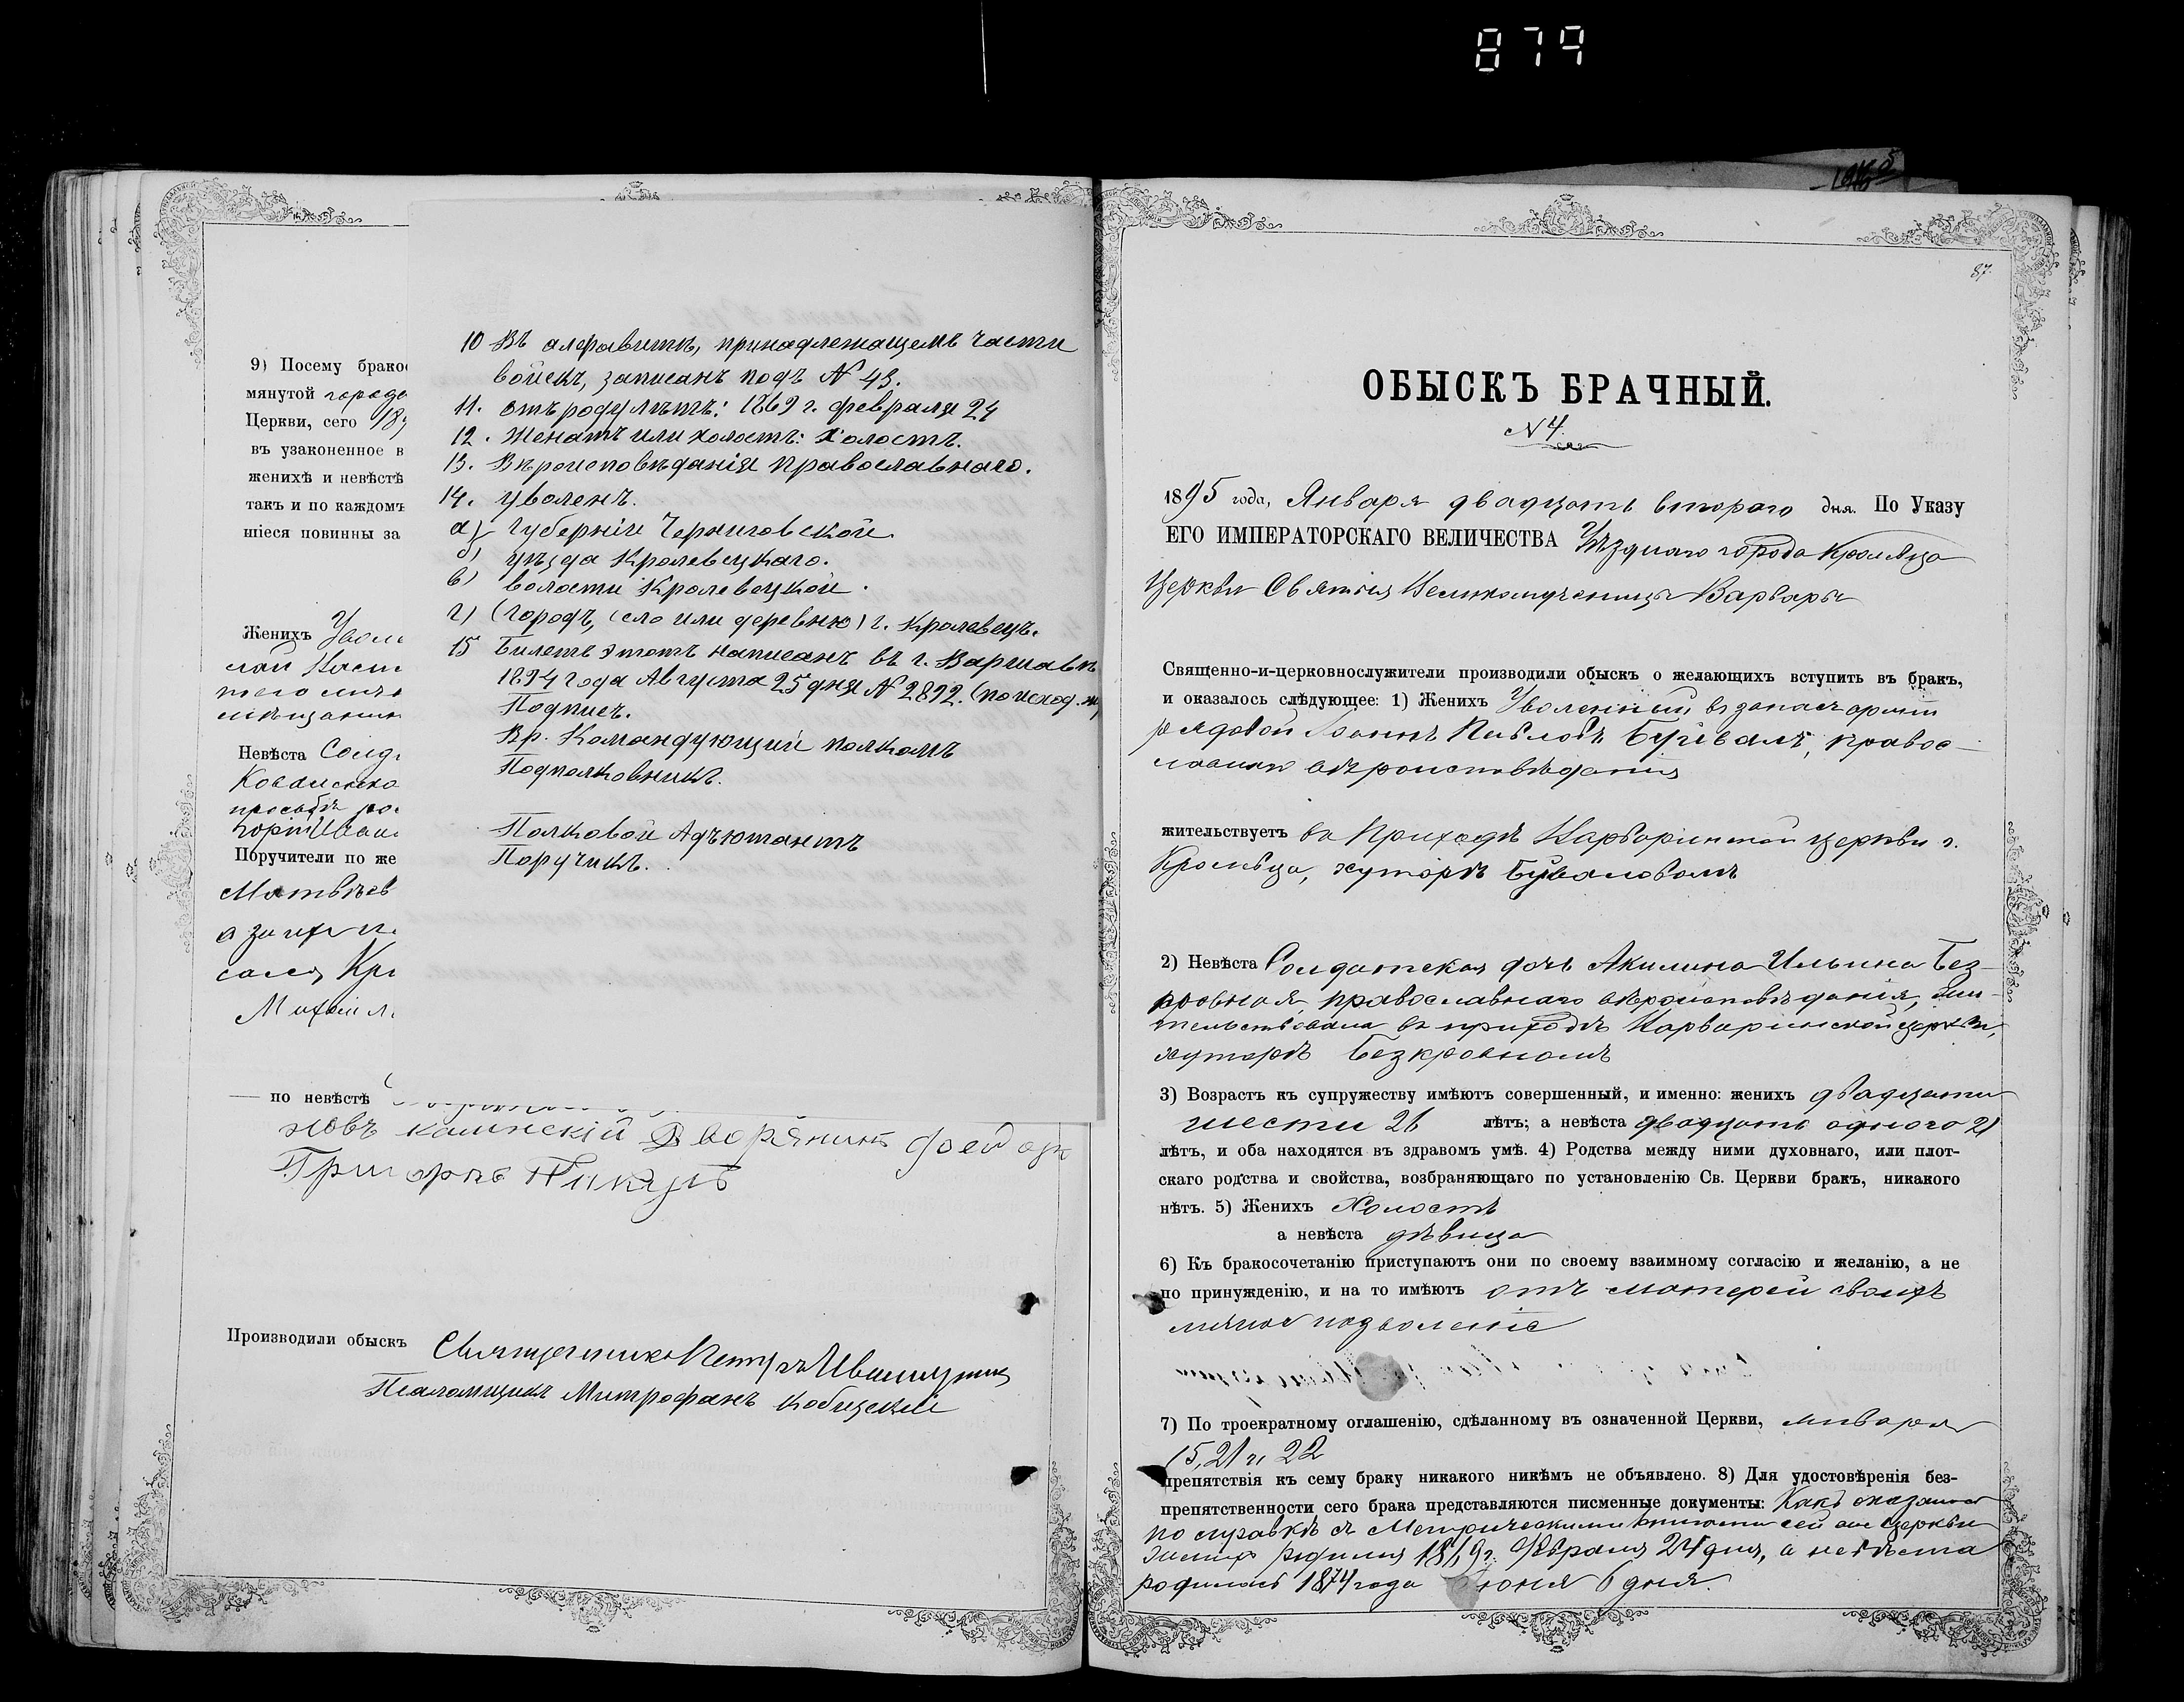 879
9) Посему брако
мянутой города
Церкви, сего 189
въ узаконенное в
женихѣ и невѣстѣ
такъ и по каждомъ
шіеся повинны за
Женихъ
Невѣста
Поручители по же
Матвѣев
Михаил
10 Въ алфавитѣ, принадлежащемъ части
войскъ, записанъ подъ № 43.
11. Отъ роду лѣтъ: 1869 г. февраля 24
12. Женатъ или холостъ: холостъ.
13. Вѣроисповѣданія Православнаго.
14. Уволенъ.
а) Губерніи Черниговской.
б) уѣзда Кролевецкаго.
в) волости Кролевецкой.
г) (городъ, село или деревню) г. Кролевецъ.
15 Билетъ этотъ написанъ въ г. Варшавѣ
1894 года Августа 25 дня № 2892. (по исход. ж)
Подпис.
Вр. Командующій полкомъ
Подполковникъ.
Полковой Адъютантъ
Поручикъ.
по невѣстѣ
Дворянинъ
Григорій
Производили обыскъ Священникъ Петръ
Псаломщикъ Митрофанъ Кобицскій
87.
ОБЫСКЪ БРАЧНЫЙ.
№ 4.
1895 года, Января двадцать втораго дня. По Указу
ЕГО ИМПЕРАТОРСКАГО ВЕЛИЧЕСТВА Уѣзднаго города Кролевца
Церкви Святыя Великомученицы Варвары
Священно-и-церковнослужители производили обыскъ о желающихъ вступить въ бракъ,
и оказалось слѣдующее: 1) Женихъ Уволенный въ запасъ арміи
рядовой Іоаннъ Павловъ Бувалъ, правос-
лавнаго вѣроисповѣданія
жительствуетъ въ Приходѣ Варваринской церкви г.
Кролевца, хуторѣ Буваловомъ
2) Невѣста Солдатская дочь Акилина Ильина Без-
кровная, православнаго вѣроисповѣданія, жи-
тельствовала въ приходѣ Варваринской церкви,
хуторѣ Безкровномъ
3) Возрастъ къ супружеству имѣютъ совершенный, и именно: женихъ двадцати
шести 26 лѣтъ; а невѣста двадцать одного 21
лѣтъ, и оба находятся въ здравомъ умѣ. 4) Родства между ними духовнаго, или плот-
скаго родства и свойства, возбраняющаго по установленію Св. Церкви бракъ, никакого
нѣтъ. 5) Женихъ Холостъ
а невѣста дѣвица
6) Къ бракосочетанію приступаютъ они по своему взаимному согласію и желанію, а не
по принужденію, и на то имѣютъ отъ матерей своихъ
личное позволеніе
7) По троекратному оглашенію, сдѣланному въ означенной Церкви, января
15, 21 и 22
препятствія къ сему браку никакого никѣмъ не объявлено. 8) Для удостовѣренія без-
препятственности сего брака представляются писменные документы: Какъ оказалось
по справкѣ съ Метрическими книгами сей же церкви
женихъ родился 1869 г. Февраля 24 дня, а невѣста
родилась 1874 года Іюня 6 дня.